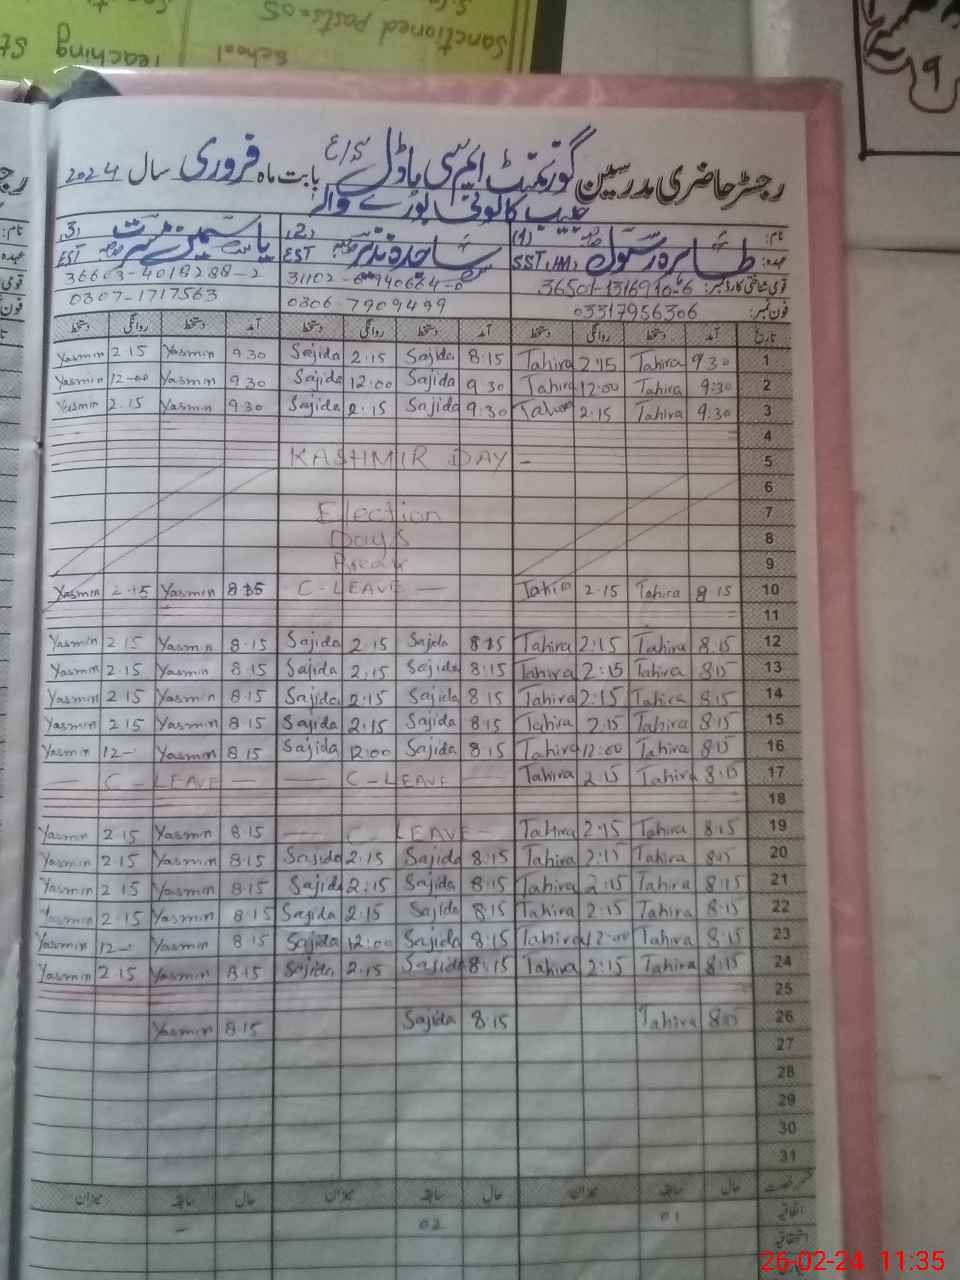 Sanctioned posts=05
School
Teaching St
9
رجسٹر حاضری مدرسین گورنمنٹ ایم سی ماڈل بابت ماہ فروری سال 2024
نام: (1) طاہرہ رسول (2) ساجدہ نذیر (3) یاسمین
عہدہ: SST, HM EST EST
قومی شناختی کارڈ نمبر:
فون نمبر: 03317956306 0306-7909499 0307-1717563
تاریخ آمد دستخط روانگی دستخط آمد دستخط روانگی دستخط آمد دستخط روانگی دستخط
Yasmin 2.15 Yasmin 9 30 Sajida 2:15 Sajida 8:15 Tahira 2:15 Tahira 9 30 1
Yasmin 12-00 Yasmin 9 30 Sajida 12:00 Sajida 9 30 Tahira 12:00 Tahira 9:30 2
Yasmin 2.15 Yasmin 9.30 Sajida 2:15 Sajida 9:30 Tahira 2:15 Tahira 9.30 3
4
KASHMIR DAY - 5
6
Election 7
Days 8
Break 9
Yasmin 2.15 Yasmin 8 15 - C-LEAVE — Tahira 2.15 Tahira 8 15 10
11
Yasmin 2 15 Yasmin 8.15 Sajida 2.15 Sajida 8:15 Tahira 2:15 Tahira 8:15 12
Yasmin 2.15 Yasmin 8.15 Sajida 2.15 Sajida 8:15 Tahira 2:15 Tahira 8:15 13
Yasmin 2 15 Yasmin 8.15 Sajida 2:15 Sajida 8 15 Tahira 2:15 Tahira 8:15 14
Yasmin 2 15 Yasmin 8.15 Sajida 2:15 Sajida 8:15 Tahira 2:15 Tahira 8:15 15
Yasmin 12- Yasmin 8.15 Sajida 12:00 Sajida 8.15 Tahira 12:00 Tahira 8:15 16
— C - LEAVE — — C - LEAVE — Tahira 2:15 Tahira 8:15 17
18
Yasmin 2.15 Yasmin 8.15 — C LEAVE — Tahira 2:15 Tahira 8:15 19
Yasmin 2.15 Yasmin 8.15 Sajida 2.15 Sajida 8:15 Tahira 2:15 Tahira 8:15 20
Yasmin 2 15 Yasmin 8.15 Sajida 2:15 Sajida 8:15 Tahira 2:15 Tahira 8:15 21
Yasmin 2.15 Yasmin 8 15 Sajida 2:15 Sajida 8:15 Tahira 2:15 Tahira 8:15 22
Yasmin 12- Yasmin 8 15 Sajida 12:00 Sajida 8:15 Tahira 12:00 Tahira 8:15 23
Yasmin 2 15 Yasmin 8.15 Sajida 2.15 Sajida 8:15 Tahira 2:15 Tahira 8:15 24
25
Yasmin 8.15 Sajida 8.15 Tahira 8:15 26
27
28
29
30
31
حال سابقہ میزان حال سابقہ میزان حال سابقہ میزان
اتفاقیہ 01 02 -
استحقاقیہ
26-02-24 11:35